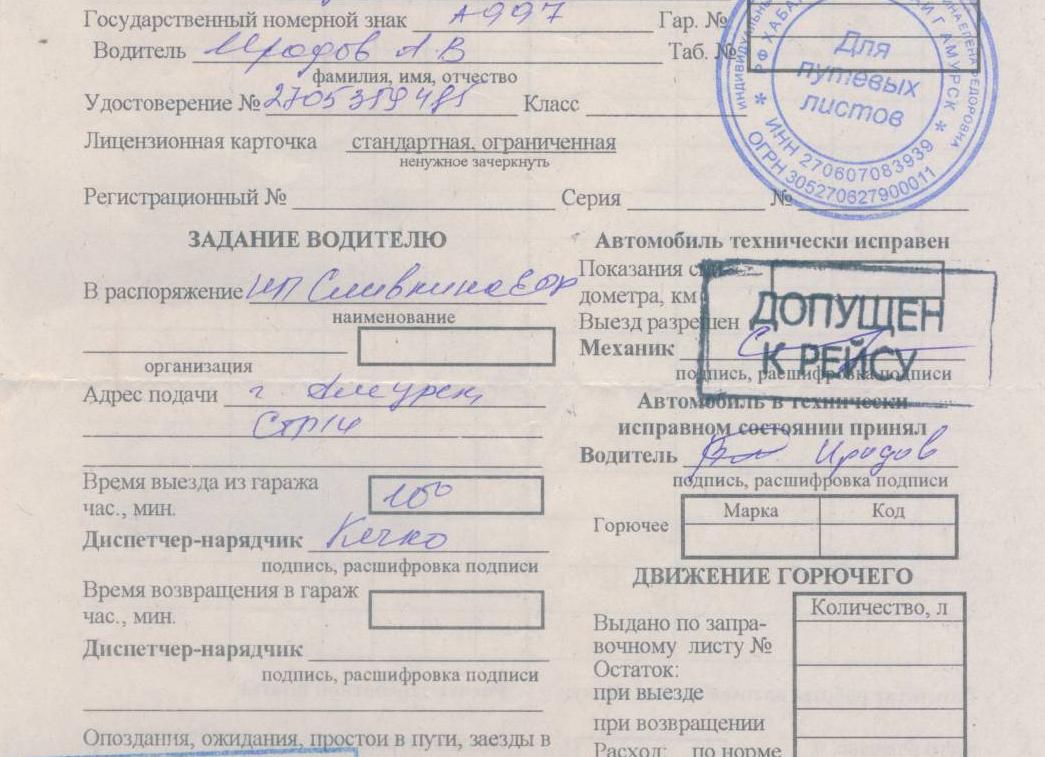 Государственный номерной знак А997 Гар. №
Водитель Иродов А В Таб. №
фамилия, имя, отчество
Удостоверение № 2705359485 Класс
Лицензионная карточка стандартная, ограниченная
ненужное зачеркнуть
Регистрационный № Серия №
Для
путевых
листов
ИНН 270607083939
ОГРН 305270627900011
ЗАДАНИЕ ВОДИТЕЛЮ
В распоряжение ИП Сливкина
наименование
организация
Адрес подачи г Амурск
Время выезда из гаража
час., мин.
Диспетчер-нарядчик Кечко
подпись, расшифровка подписи
Время возвращения в гараж
час., мин.
Диспетчер-нарядчик
подпись, расшифровка подписи
Опоздания, ожидания, простои в пути, заезды в
Автомобиль технически исправен
Показания
дометра, км
Выезд разрешен
Механик
подпись, расшифровка подписи
ДОПУЩЕН
К РЕЙСУ
Автомобиль в технически
исправном состоянии принял
Водитель Иродов
подпись, расшифровка подписи
Горючее Марка Код
ДВИЖЕНИЕ ГОРЮЧЕГО
Количество, л
Выдано по запра-
вочному листу №
Остаток:
при выезде
при возвращении
Расход: по норме